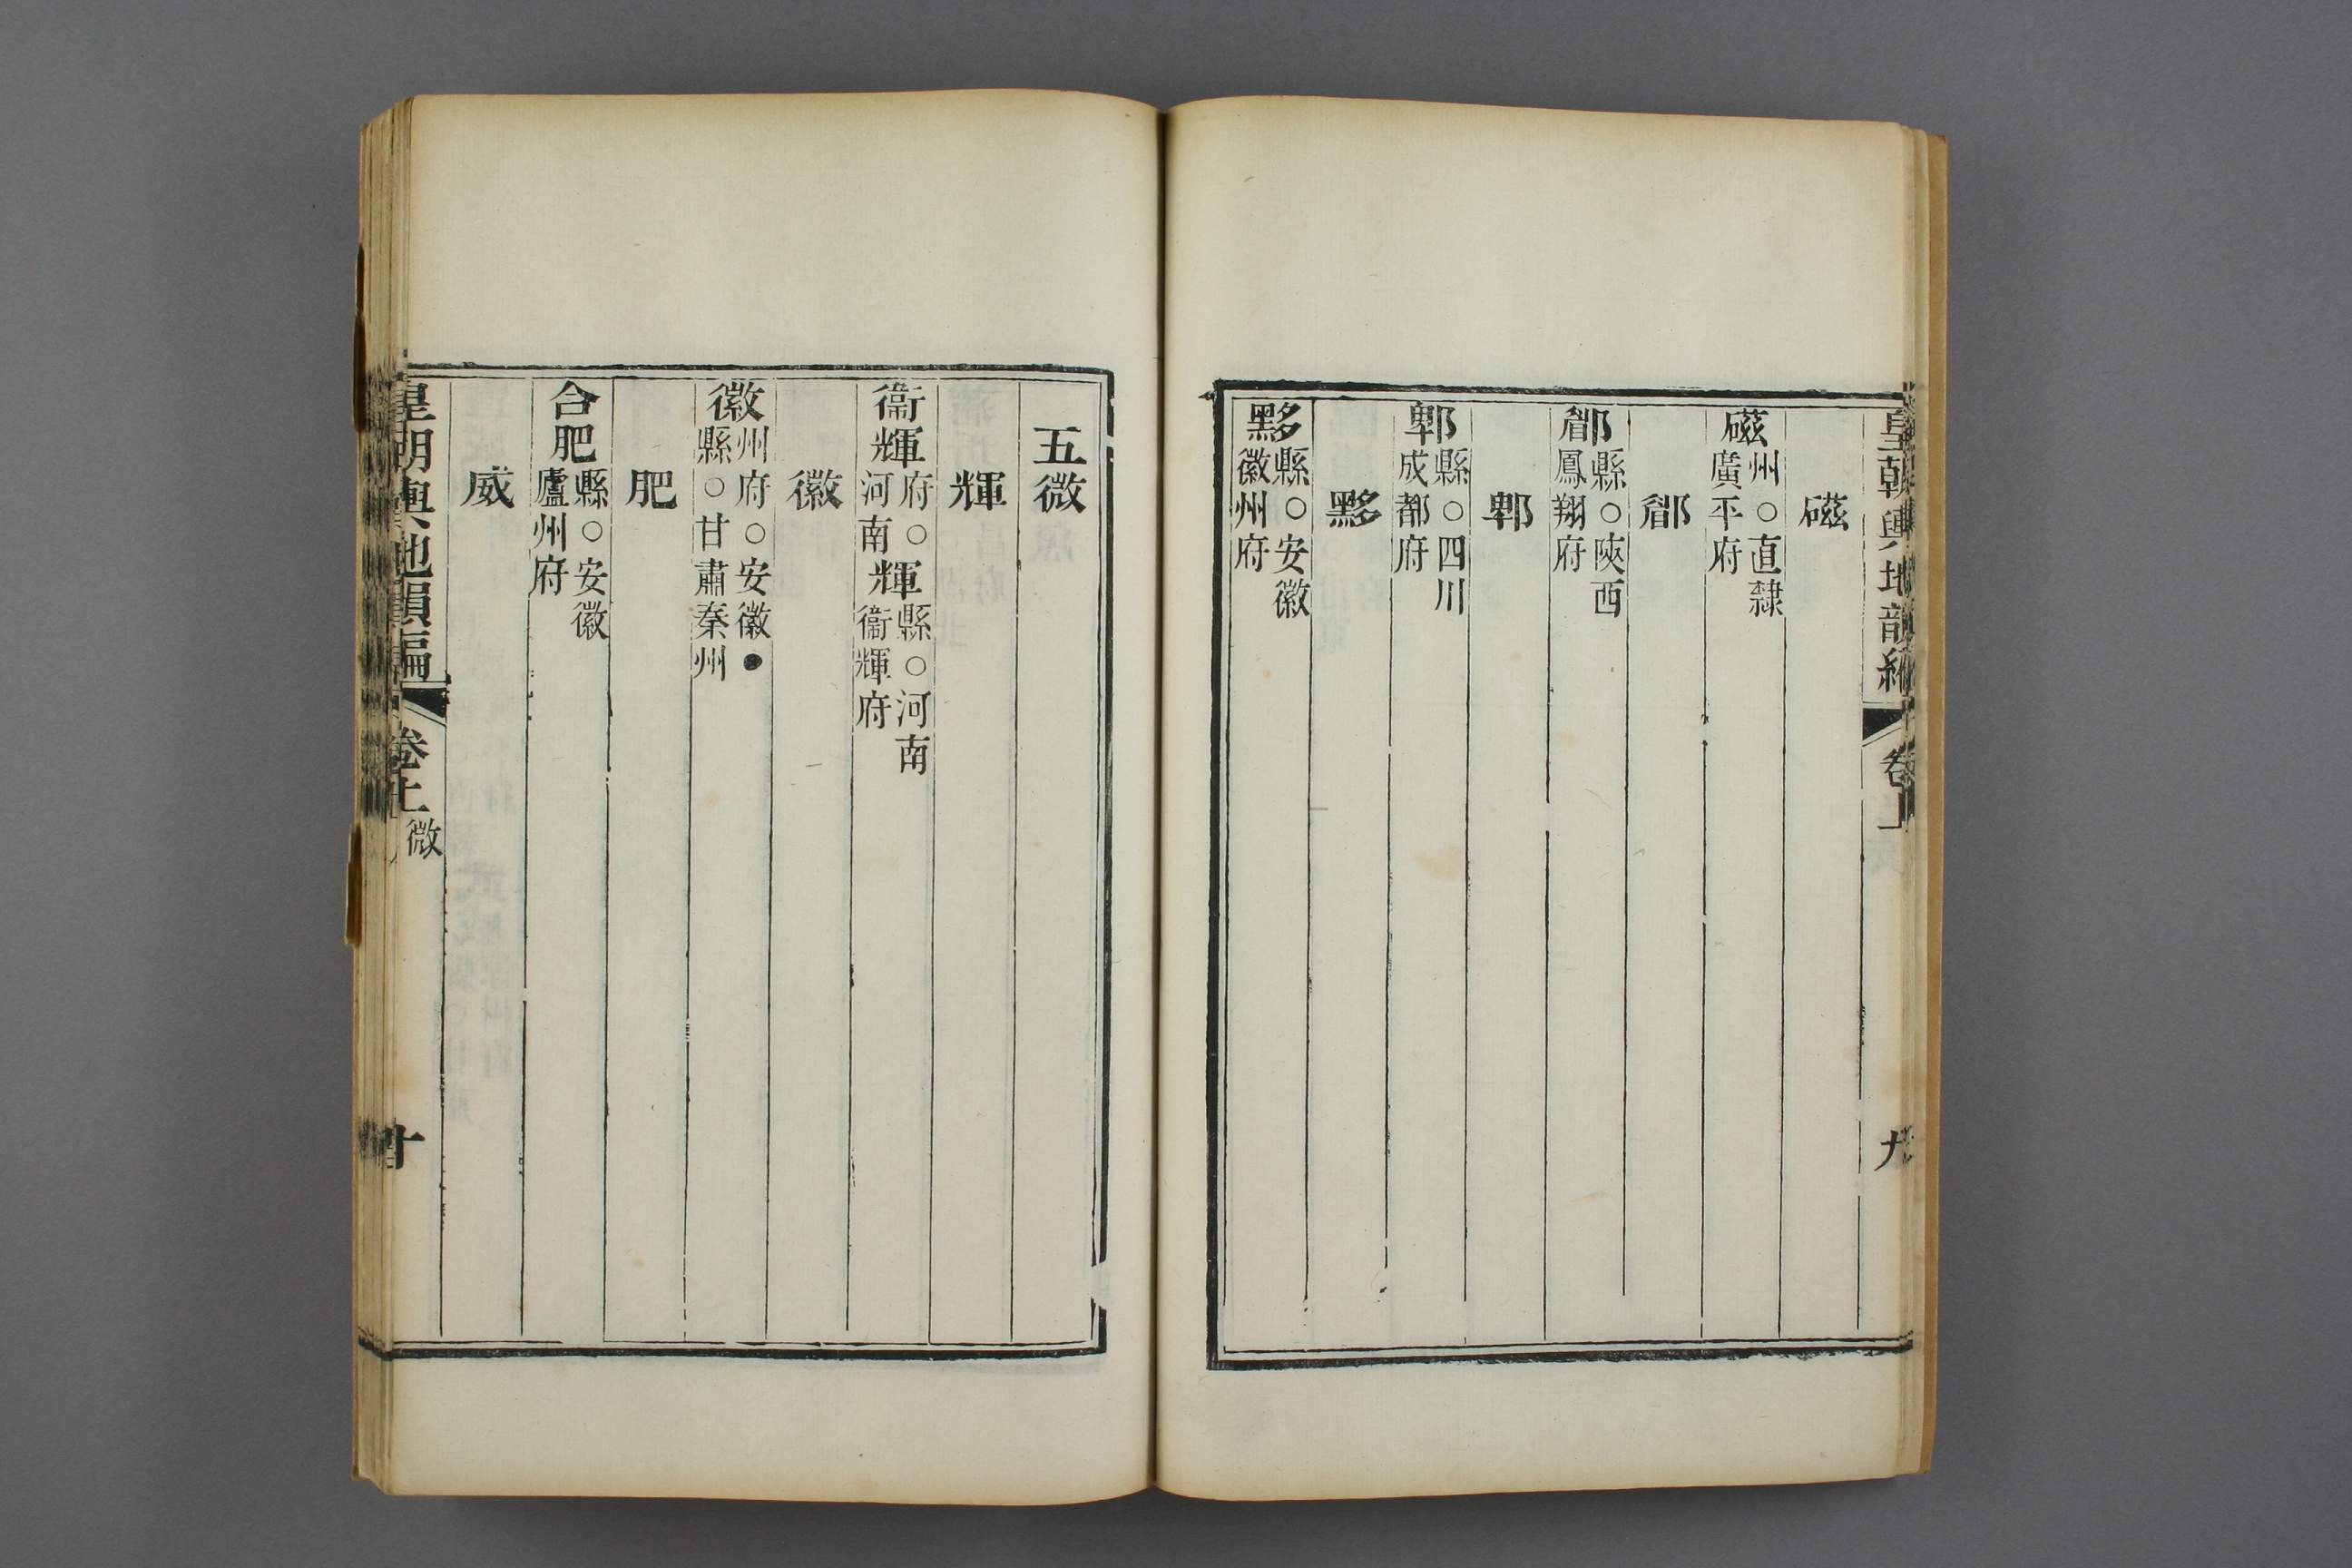 皇朝輿地韻編 卷上 九
磁
磁州○直隸廣平府
郿
郿縣○陝西鳳翔府
郫
郫縣○四川成都府
黟
黟縣○安徽徽州府
五微
輝
衞輝府○河南輝縣○河南衞輝府
徽
徽州府○安徽●縣○甘肅秦州
肥
合肥縣○安徽廬州府
威
皇朝輿地韻編 卷上 微 十